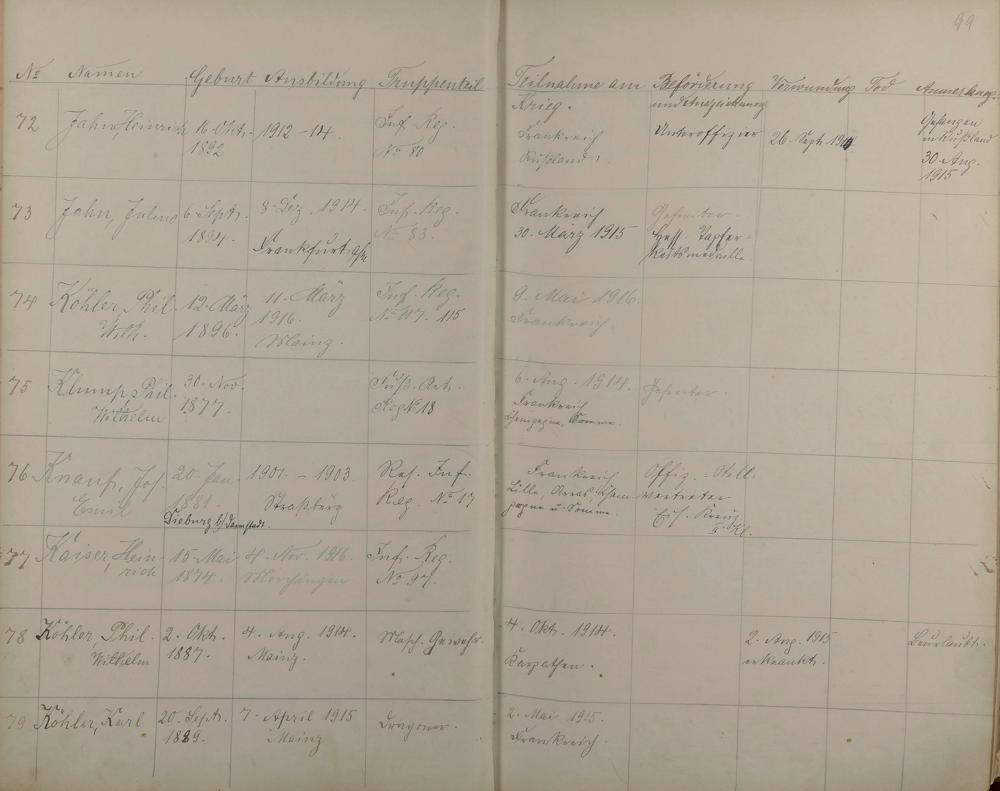 99
No Namen Geburt Ausbildung Truppenteil Teilnahme am Krieg. Beförderung und Auszeichnung Verwundung Tod Anmerkung
72 Jahn, Heinrich 16. Okt. 1892 1912-14. Inf. Reg. No 80 Frankreich Rußland. Unteroffizier 26. Sept. 1914 Gefangen in Rußland 30. Aug. 1915
73 Jahn, Julius 6. Sept. 1894. 8. Dez. 1914. Frankfurt a/M Inf. Reg. No 83. Frankreich 30. März 1915 Gefreiter. Hess. Tapferkeitsmedaille
74 Köhler, Phil. Wilh. 12. März 1896. 11. März 1916. Mainz. Inf. Reg. No 117. 115 9. Mai 1916. Frankreich.
75 Klump, Phil. Wilhelm 30. Nov. 1877. Fuß. Art. Reg No 18 6. Aug. 1914. Frankreich Champagne, Somme. Gefreiter.
76 Knauf, Joh. Emil 20. Jan. 1881. Dieburg b/ Darmstadt. 1901 - 1903 Straßburg Res. Inf. Reg. No 17 Frankreich Lille, Arras, Champagne u. Somme. Offiz.-Stellvertreter Eis. Kreuz II. Kl.
77 Kaiser, Heinrich 15. Mai 1874. 4. Nov. 1916. Mörchingen Inf. Reg. No 97.
78 Köhler, Phil. Wilhelm 2. Okt. 1887. 4. Aug. 1914. Mainz. Masch. Gewehr. 4. Okt. 1914. Karpathen. 2. Aug. 1915 erkrankt. Beurlaubt.
79 Köhler, Karl 20. Sept. 1889. 7. April 1915 Mainz Dragoner. 2. Mai 1915. Frankreich.